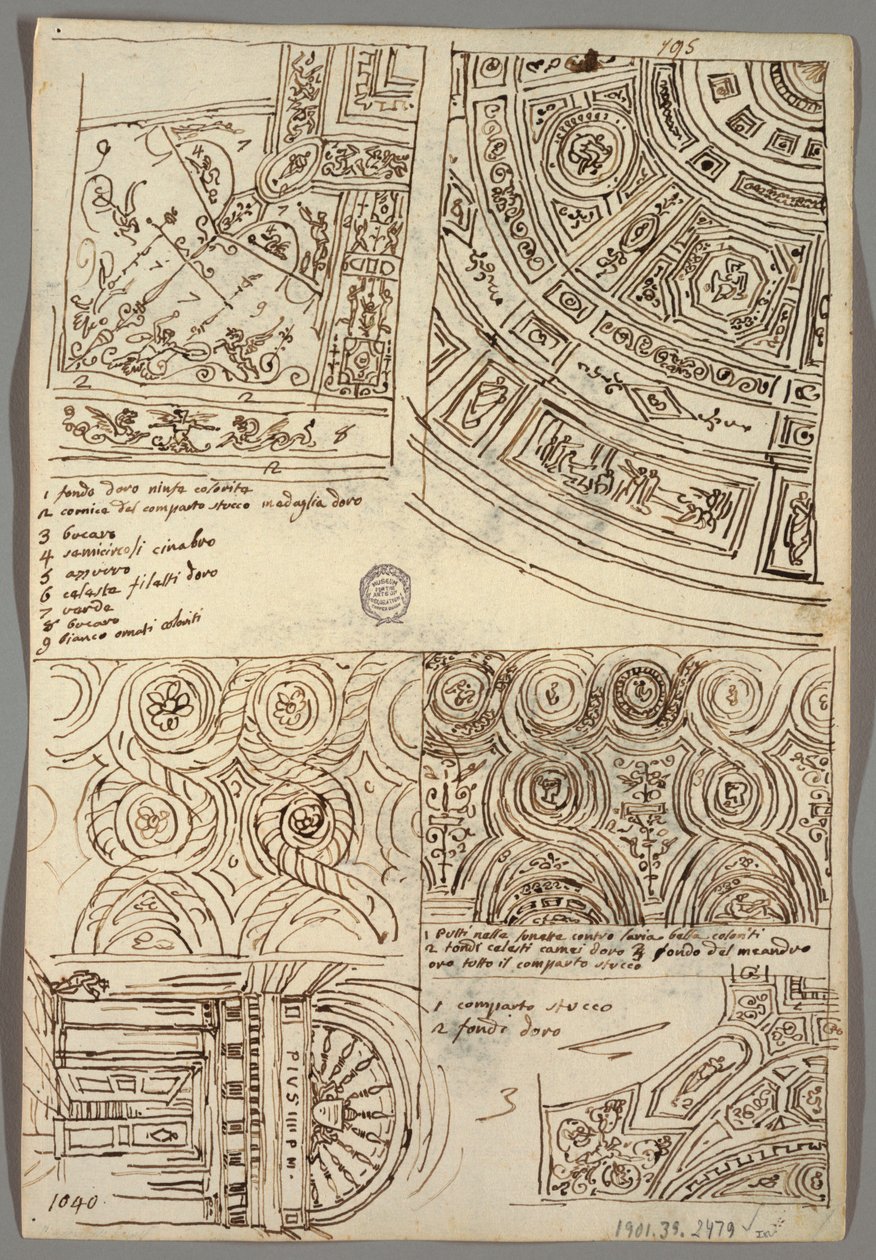 195
1 fondo doro ninfe colorite
2 cornice del comparto stucco medaglia doro
3 bucaro
4 semicircoli cinabro
5 azurro
6 celeste filetti doro
7 verde
8 bucaro
9 bianco ornati coloriti
MUSEUM
FOR THE
ARTS OF
DECORATION
COOPER UNION
1 Putti nelle lunette contro laria bella coloriti
2 tondi celesti camei doro 3 fondo del meandro
oro tutto il comparto stucco
1 comparto stucco
2 fondi doro
3
PIVS IIII P M
1040
1901.39.2479